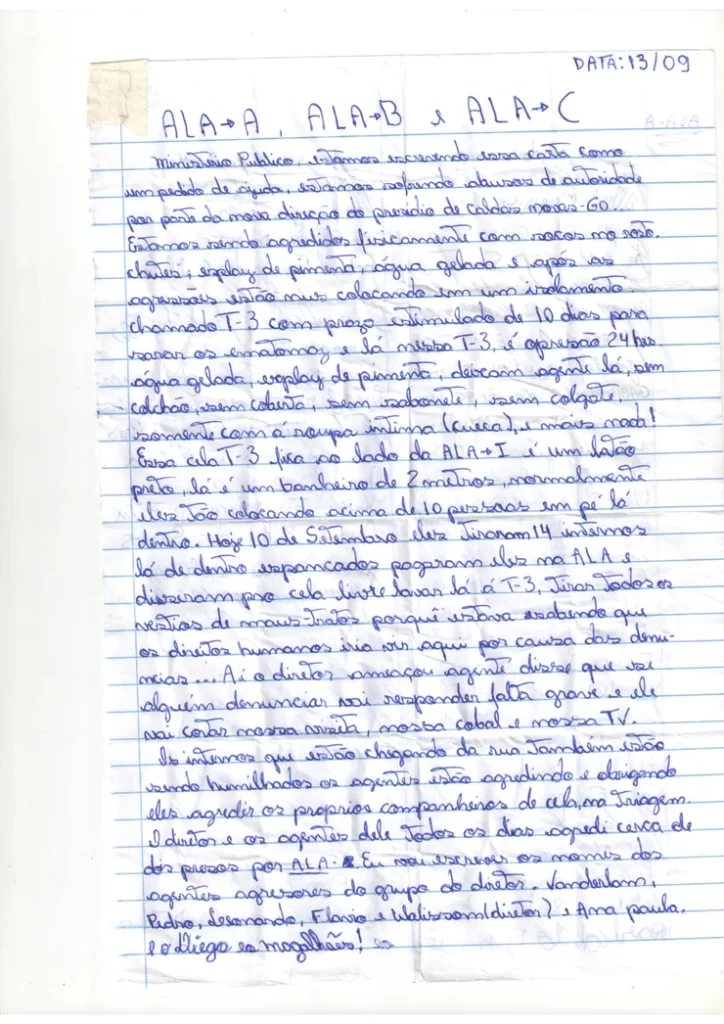 DATA: 13/09
ALA→A, ALA→B e ALA→C
Ministério Publico, estamos escrevendo essa carta como
um pedido de ajuda, estamos sofrendo abusos de autoridade
por parte da nova direção do presídio de caldas novas-GO..
Estamos sendo agredidos fisicamente com socos no rosto,
chutes, esplay de pimenta, água gelada e após as
agressões estão nus colocando em um isolamento
chamado T-3 com prazo estimulado de 10 dias para
sarar os ematomaz e lá nessa T-3, é opressão 24 hrs.
água gelada, esplay de pimenta, deixam agente lá, sem
colchão, sem coberta, sem sabonete, sem colgate,
somente com á roupa intima (cueca), e mais nada!
Essa cela T-3 fica ao lado da ALA→I é um latão
preto, lá é um banheiro de 2 metros, normalmente
eles tão colocando acima de 10 pessoas em pé lá
dentro. Hoje 10 de Setembro eles tiraram 14 internos
lá de dentro espancados pogaram eles na ALA e
disseram pro cela livre lavar lá á T-3, tirar todos os
vestios de maus-tratos porquê estava sabendo que
os direitos humanos iria vir aqui por causa das denu-
ncias... Ai o diretor ameaçou agente disse que se
alguém denunciar vai responder falta grave e ele
vai cortar nossa visita, nossa cobal e nossa TV.
Os internos que estão chegando da rua também estão
sendo humilhados os agentes estão agredindo e obrigando
eles agredir os proprios companheiros de cela, na triagem.
O diretor e os agentes dele todos os dias agredi cerca de
dois presos por ALA. Eu vou escrever os nomes dos
agentes agresores do grupo do diretor. Vanderlam,
Pedro, Flavio e Walissom (diretor) e Ana paula.
e o Diego e o magalhães!